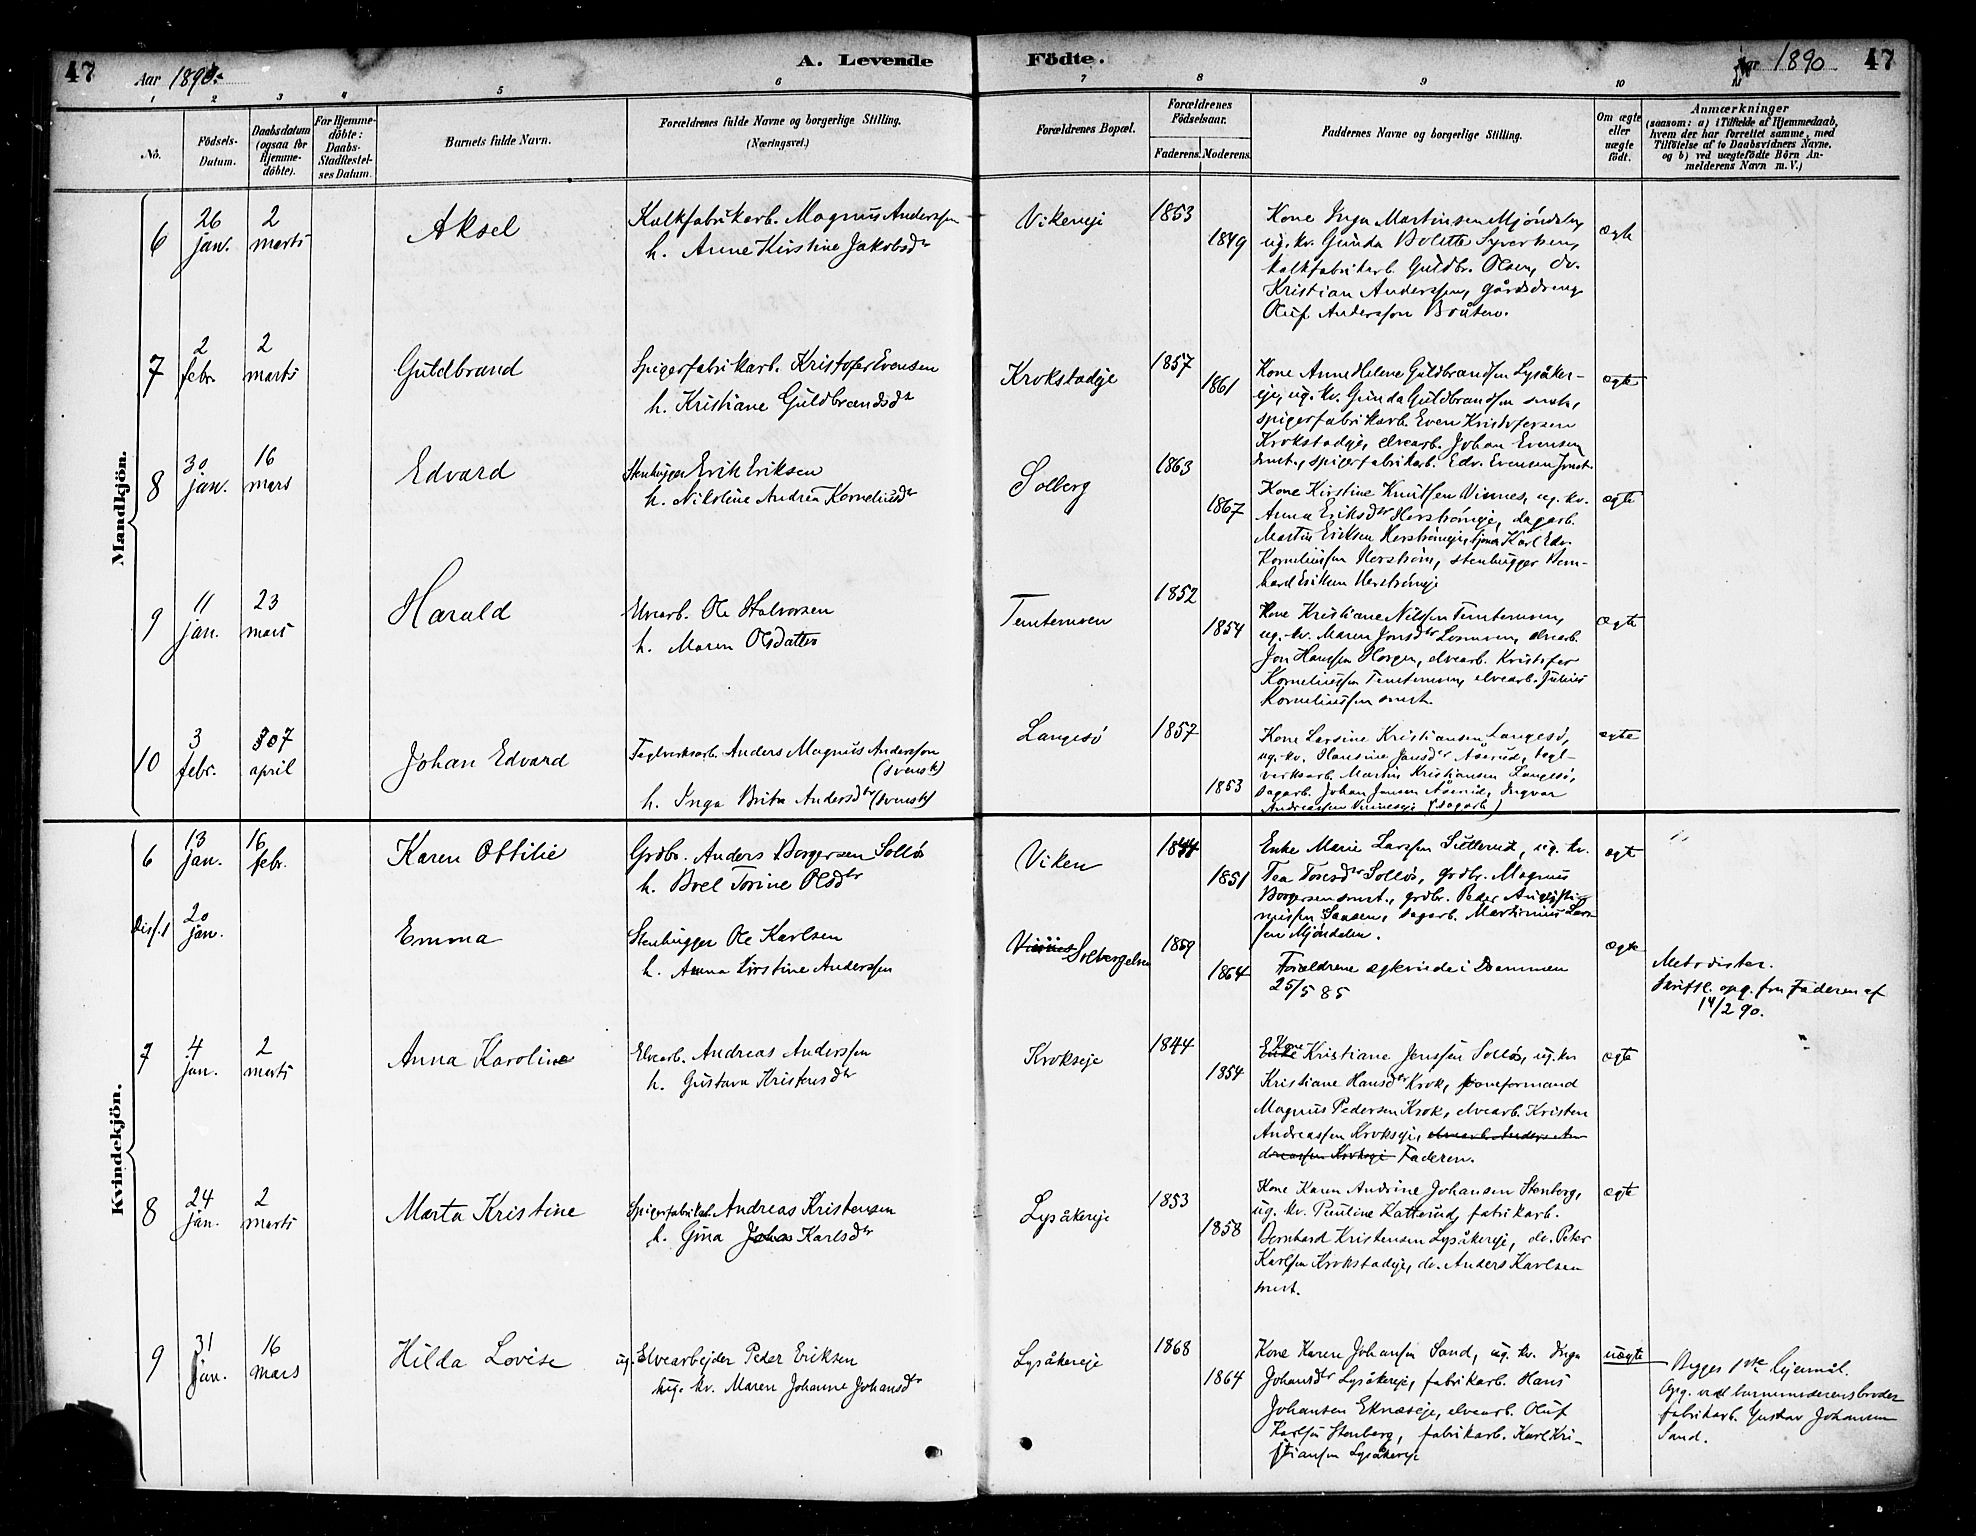 47
Aar 1890.
A. Levende
Födte.
Aar 1890
47
1 2 3 4 5 6 7 8 9 10
No.
Födsels-
Datum.
Daabsdatum
(ogsaa for
Hjemme-
döbte).
For Hjemme-
döbte:
Daabs-
Stadfæstel-
ses Datum.
Barnets fulde Navn.
Forældrenes fulde Navne og borgerlige Stilling.
(Næringsvei.)
Forældrenes Bopæl.
Forældrenes
Födselsaar.
Faderens.
Moderens.
Faddernes Navne og borgerlige Stilling.
Om ægte
eller
uægte
födt.
Anmærkninger
(saasom: a) i Tilfælde af Hjemmedaab,
hvem der har forrettet samme, med
Tilföielse af to Daabsvidners Navne,
og b) ved uægtefödte Börn An-
melderens Navn m. V.)
Mandkjön.
6
26
jan.
2
marts
Aksel
Kalkfabrikarb. Magnus Anderssen
h. Anne Kirstine Jakobsdr
Vikereje
1853
1849
Kone Inga Martinsen Mjöndalen,
ug. kv. Gunda Bolette Syversen,
kalkfabrikarb. Guldbr. Olsen, do.
Kristian Anderssen, gårdsdreng
Oluf Anderssen Bråten.
ægte
7
2
febr.
2
marts
Guldbrand
Spigerfabrikarb. Kristofer Evensen
h. Kristiane Guldbrandsdr
Krokstadeje
1857
1861
Kone Anne Helene Guldbrandsen Lysåker-
eje, ug. kv. Gunda Guldbrandsen smst.,
spigerfabrikarb. Even Kristofersen
Krokstadeje, elvearb. Johan Evensen
smst., spigerfabrikarb. Edv. Evensen smst.
ægte
8
30
jan.
16
mars
Edvard
Stenhugger Erik Eriksen
h. Nikoline Andrea Korneliusdr
Solberg
1863
1867
Kone Kirstine Knutsen Vinnes, ug. kv.
Anna Eriksdr Herströmeje, dagarb.
Martin Eriksen Herströmeje, tjener Karl Edv.
Korneliussen Herström, stenhugger Bern-
hard Eriksen Herströmeje
ægte
9
11
jan.
23
mars
Harald
Elvearb. Ole Halvorsen
h. Maren Olsdatter
Temtemoen
1852
1854
Kone Kristiane Nilssen Temtemoen,
ug. kv. Maren Jonsdr Lomoen, elvearb.
Jon Hanssen Horgen, elvearb. Kristofer
Korneliussen Temtemoen, elvearb. Julius
Korneliussen smst.
ægte
10
3
febr.
7
april
Johan Edvard
Teglverksarb. Anders Magnus Andersson
(svensk)
h. Inga Brita Andersdtr (svensk)
Langesö
1857
1853
Kone Larsine Kristiansen Langesö,
ug. kv. Hansine Jansdr Åserud, tegl-
verksarb. Martin Kristiansen Langesö,
dagarb. Johan Jansen Åserud, Ingvar
Andreassen Vinneseje (dagarb.)
ægte
Kvindekjön.
6
13
jan.
16
febr.
Karen Ottilie
Grdbr. Anders Borgersen Solløs
h. Brel Torine Olsdtr
Viken
1844
1851
Enke Marie Larssen Sutterud, ug. kv.
Tea Toresdr Solløs, grdbr. Magnus
Borgersen smst., grdbr. Peder Augusti-
nussen Sansen, dagarb. Martinius Lars-
sen Mjöndalen.
ægte
Diss. 1
20
jan.
Emma
Stenhugger Ole Karlsen
h. Anna Kirstine Anderssen
Vinnes Solbergelven
1859
1864
Forældrene ægteviede i Drammen
25/5 85
ægte
Metodister.
Skriftl. opg. fra Faderen af
14/2 90.
7
4
jan.
2
marts
Anna Karoline
Elvearb. Andreas Anderssen
h. Gustava Kristensdtr
Krokseje
1844
1854
Enke Kone Kristiane Jenssen Solløs, ug. kv
Kristiane Hansdtr Krok, formand
Magnus Pedersen Krok, elvearb. Kristen
Andreassen Krokseje, elvearb. Anders An-
dreassen Krokseje Faderen.
ægte
8
24
jan.
2
marts
Marta Kristine
Spigerfabrikarb. Andreas Kristensen
h. Gina Johan Karlsdtr
Lysåkereje
1853
1858
Kone Karen Andrine Johansen Stenberg,
ug. kv. Pauline Katterud, fabrikarb.
Bernhard Kristensen Lysåkereje, do. Peter
Karlsen Krokstadeje, do. Anders Karlsen
smst.
ægte
9
31
jan.
16
mars
Hilda Lovise
ug. Elvearbejder Peder Eriksen
ug. kv. Maren Johanne Johansdr
Lysåkereje
1868
1864
Kone Karen Johansen Sand, ug. kv. Inga
Johansdr Lysåkereje, fabrikarb. Hans
Johansen Eknæseje, elvearb. Oluf
Karlsen Stenberg, fabrikarb. Karl Kri-
stiansen Lysåkereje
uægte
Begges 1ste lejermål.
Opg. ved barnemoderens broder
fabrikarb. Gustav Johansen
Sand.